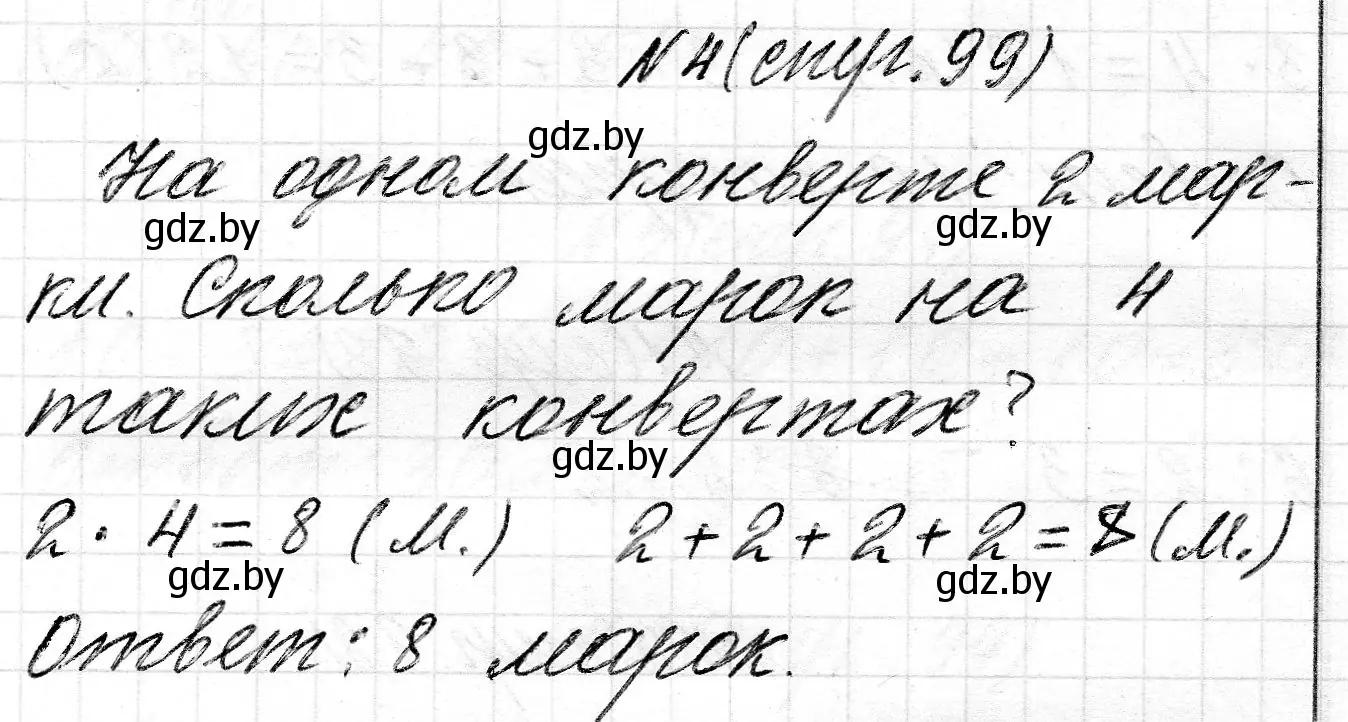 N 4 (стр. 99)
gdz.by
На одном конверте 2 мар-
gdz.by gdz.by
ки. Сколько марок на 4
таких конвертах?
gdz.by
2 · 4 = 8 (м.) 2 + 2 + 2 + 2 = 8 (м.)
gdz.by gdz.by
Ответ: 8 марок.